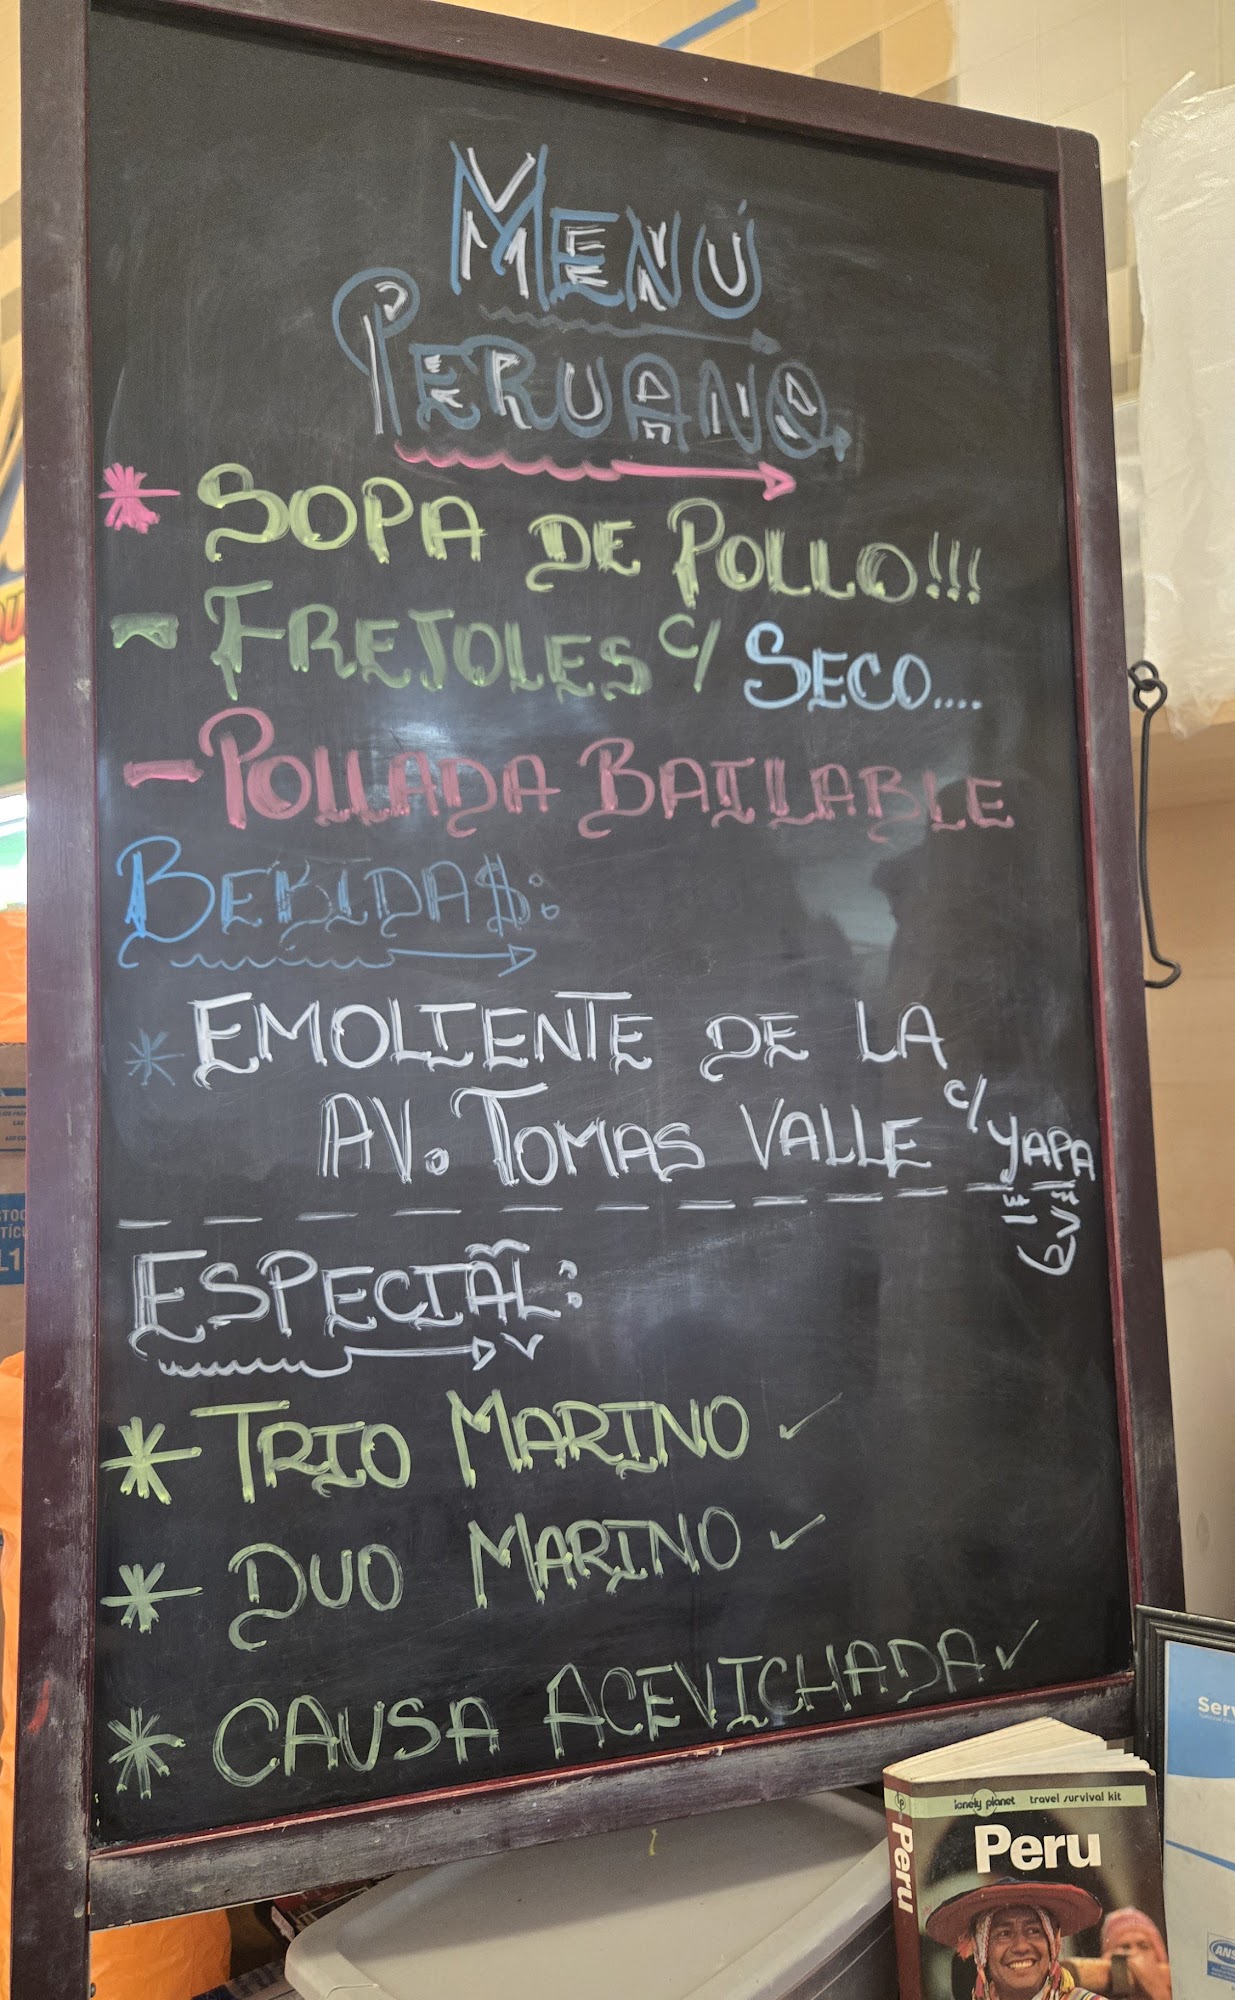 MENÚ
PERUANO
* SOPA DE POLLO!!!
- FREJOLES C/ SECO....
- POLLADA BAILABLE
BEBIDA$:
* EMOLIENTE DE LA
AV. TOMAS VALLE C/ YAPA
ESPECIAL:
* TRIO MARINO ✓
* DUO MARINO ✓
* CAUSA ACEVICHADA ✓
lonely planet travel survival kit
Peru
Peru